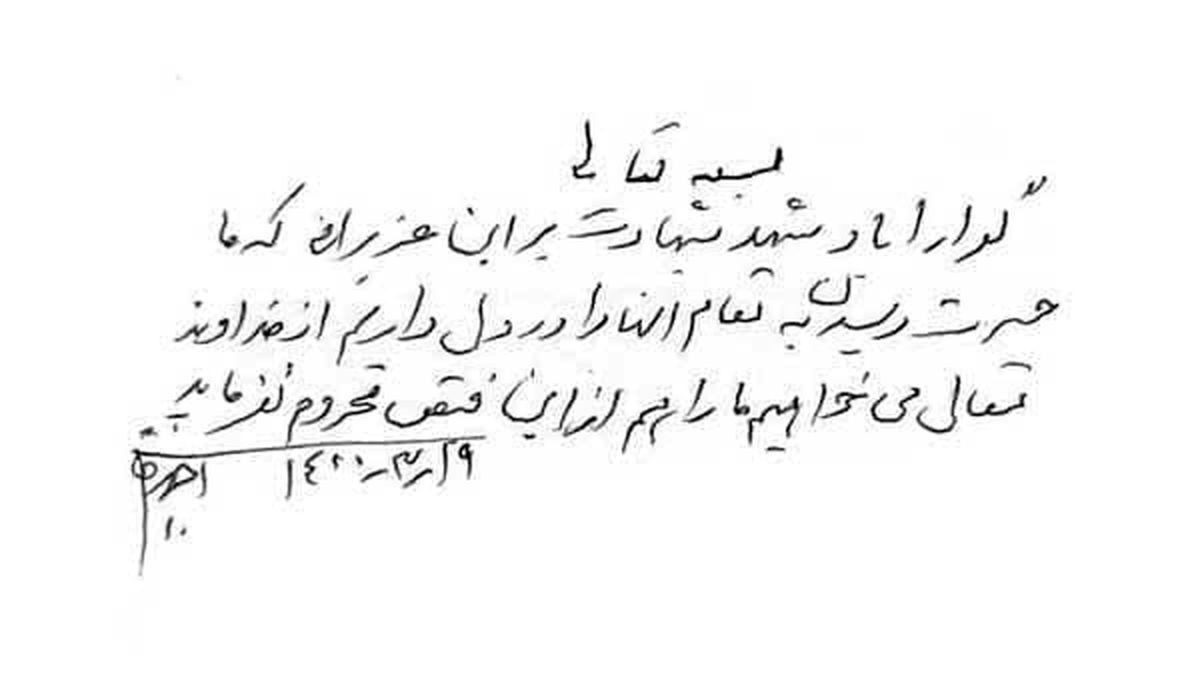 بسمه تعالی
گوارا باد شهد شهادت بر این عزیزانی که ما
حسرت رسیدن به مقام آنها را در دل داریم از خداوند
متعال می خواهیم ما را هم از این فیض محروم نفرماید
۱۴۰۰/۳/۱۹
۱۰